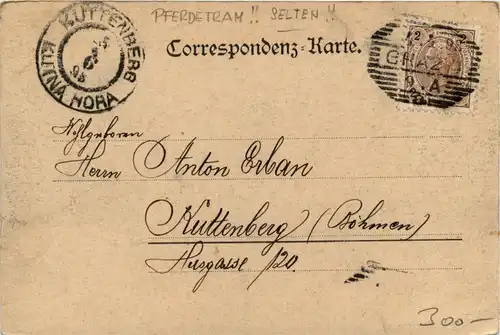 PFERDETRAM !! SELTEN !!
KUTTENBERG
KUTNA HORA
Correspondenz-Karte.
GRAZ
Wohlgeboren
Herrn Anton Erban
Kuttenberg (Böhmen)
Husgasse 120.
300-